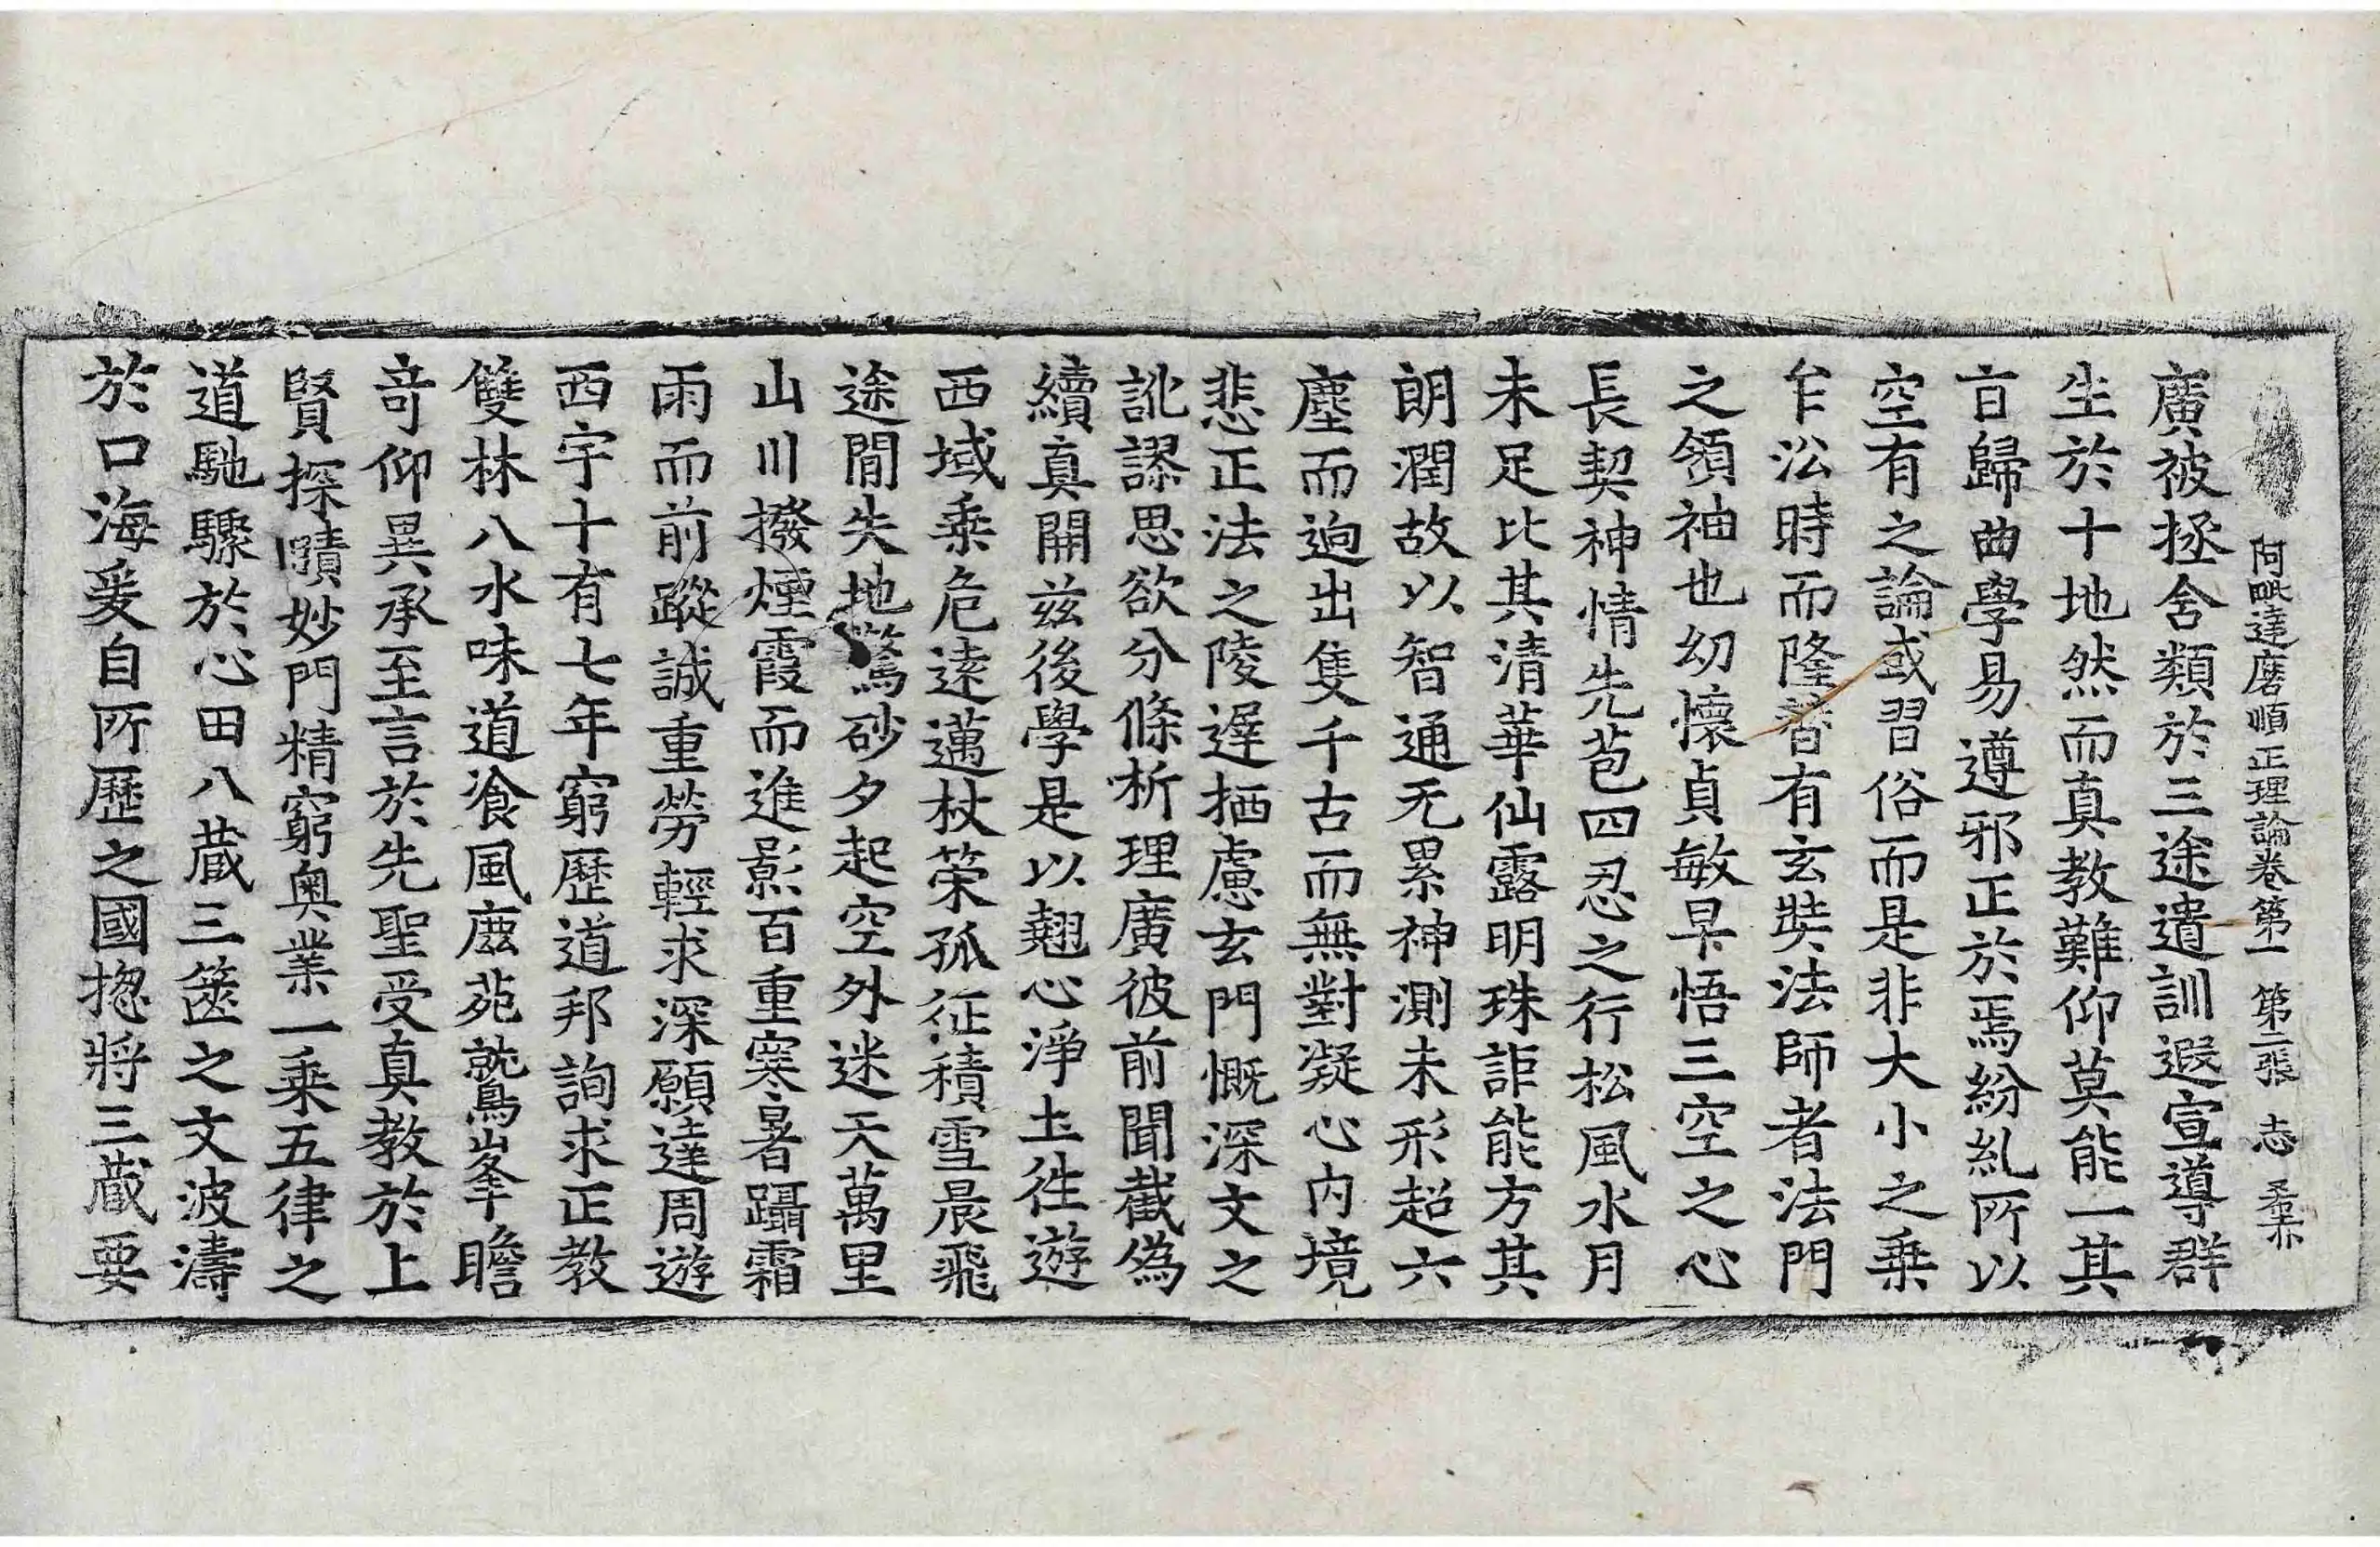 阿毗達磨順正理論卷第一 第二張 志
廣被拯含類於三途遺訓遐宣導群
生於十地然而真教難仰莫能一其
㫖歸曲學易遵邪正於焉紛糺所以
空有之論或習俗而是非大小之乗
乍㳂時而隆替有玄奘法師者法門
之領袖也幼懷貞敏早悟三空之心
長契神情先苞四忍之行松風水月
未足比其清華仙露明珠詎能方其
朗潤故以智通无累神測未形超六
塵而逈出隻千古而無對凝心内境
悲正法之陵遲栖慮玄門慨深文之
訛謬思欲分條析理廣彼前聞截偽
續真開兹後學是以翹心淨土徃遊
西域乗危遠邁杖䇿孤征積雪晨飛
途閒失地驚砂夕起空外迷天萬里
山川撥煙霞而進影百重寒暑躡霜
雨而前蹤誠重勞輕求深願達周遊
西宇十有七年窮歷道邦詢求正教
雙林八水味道飡風鹿苑鷲峯瞻
竒仰異承至言於先聖受真教於上
賢探賾妙門精窮奥業一乗五律之
道馳驟於心田八蔵三篋之文波濤
於口海爰自所歷之國揔將三蔵要